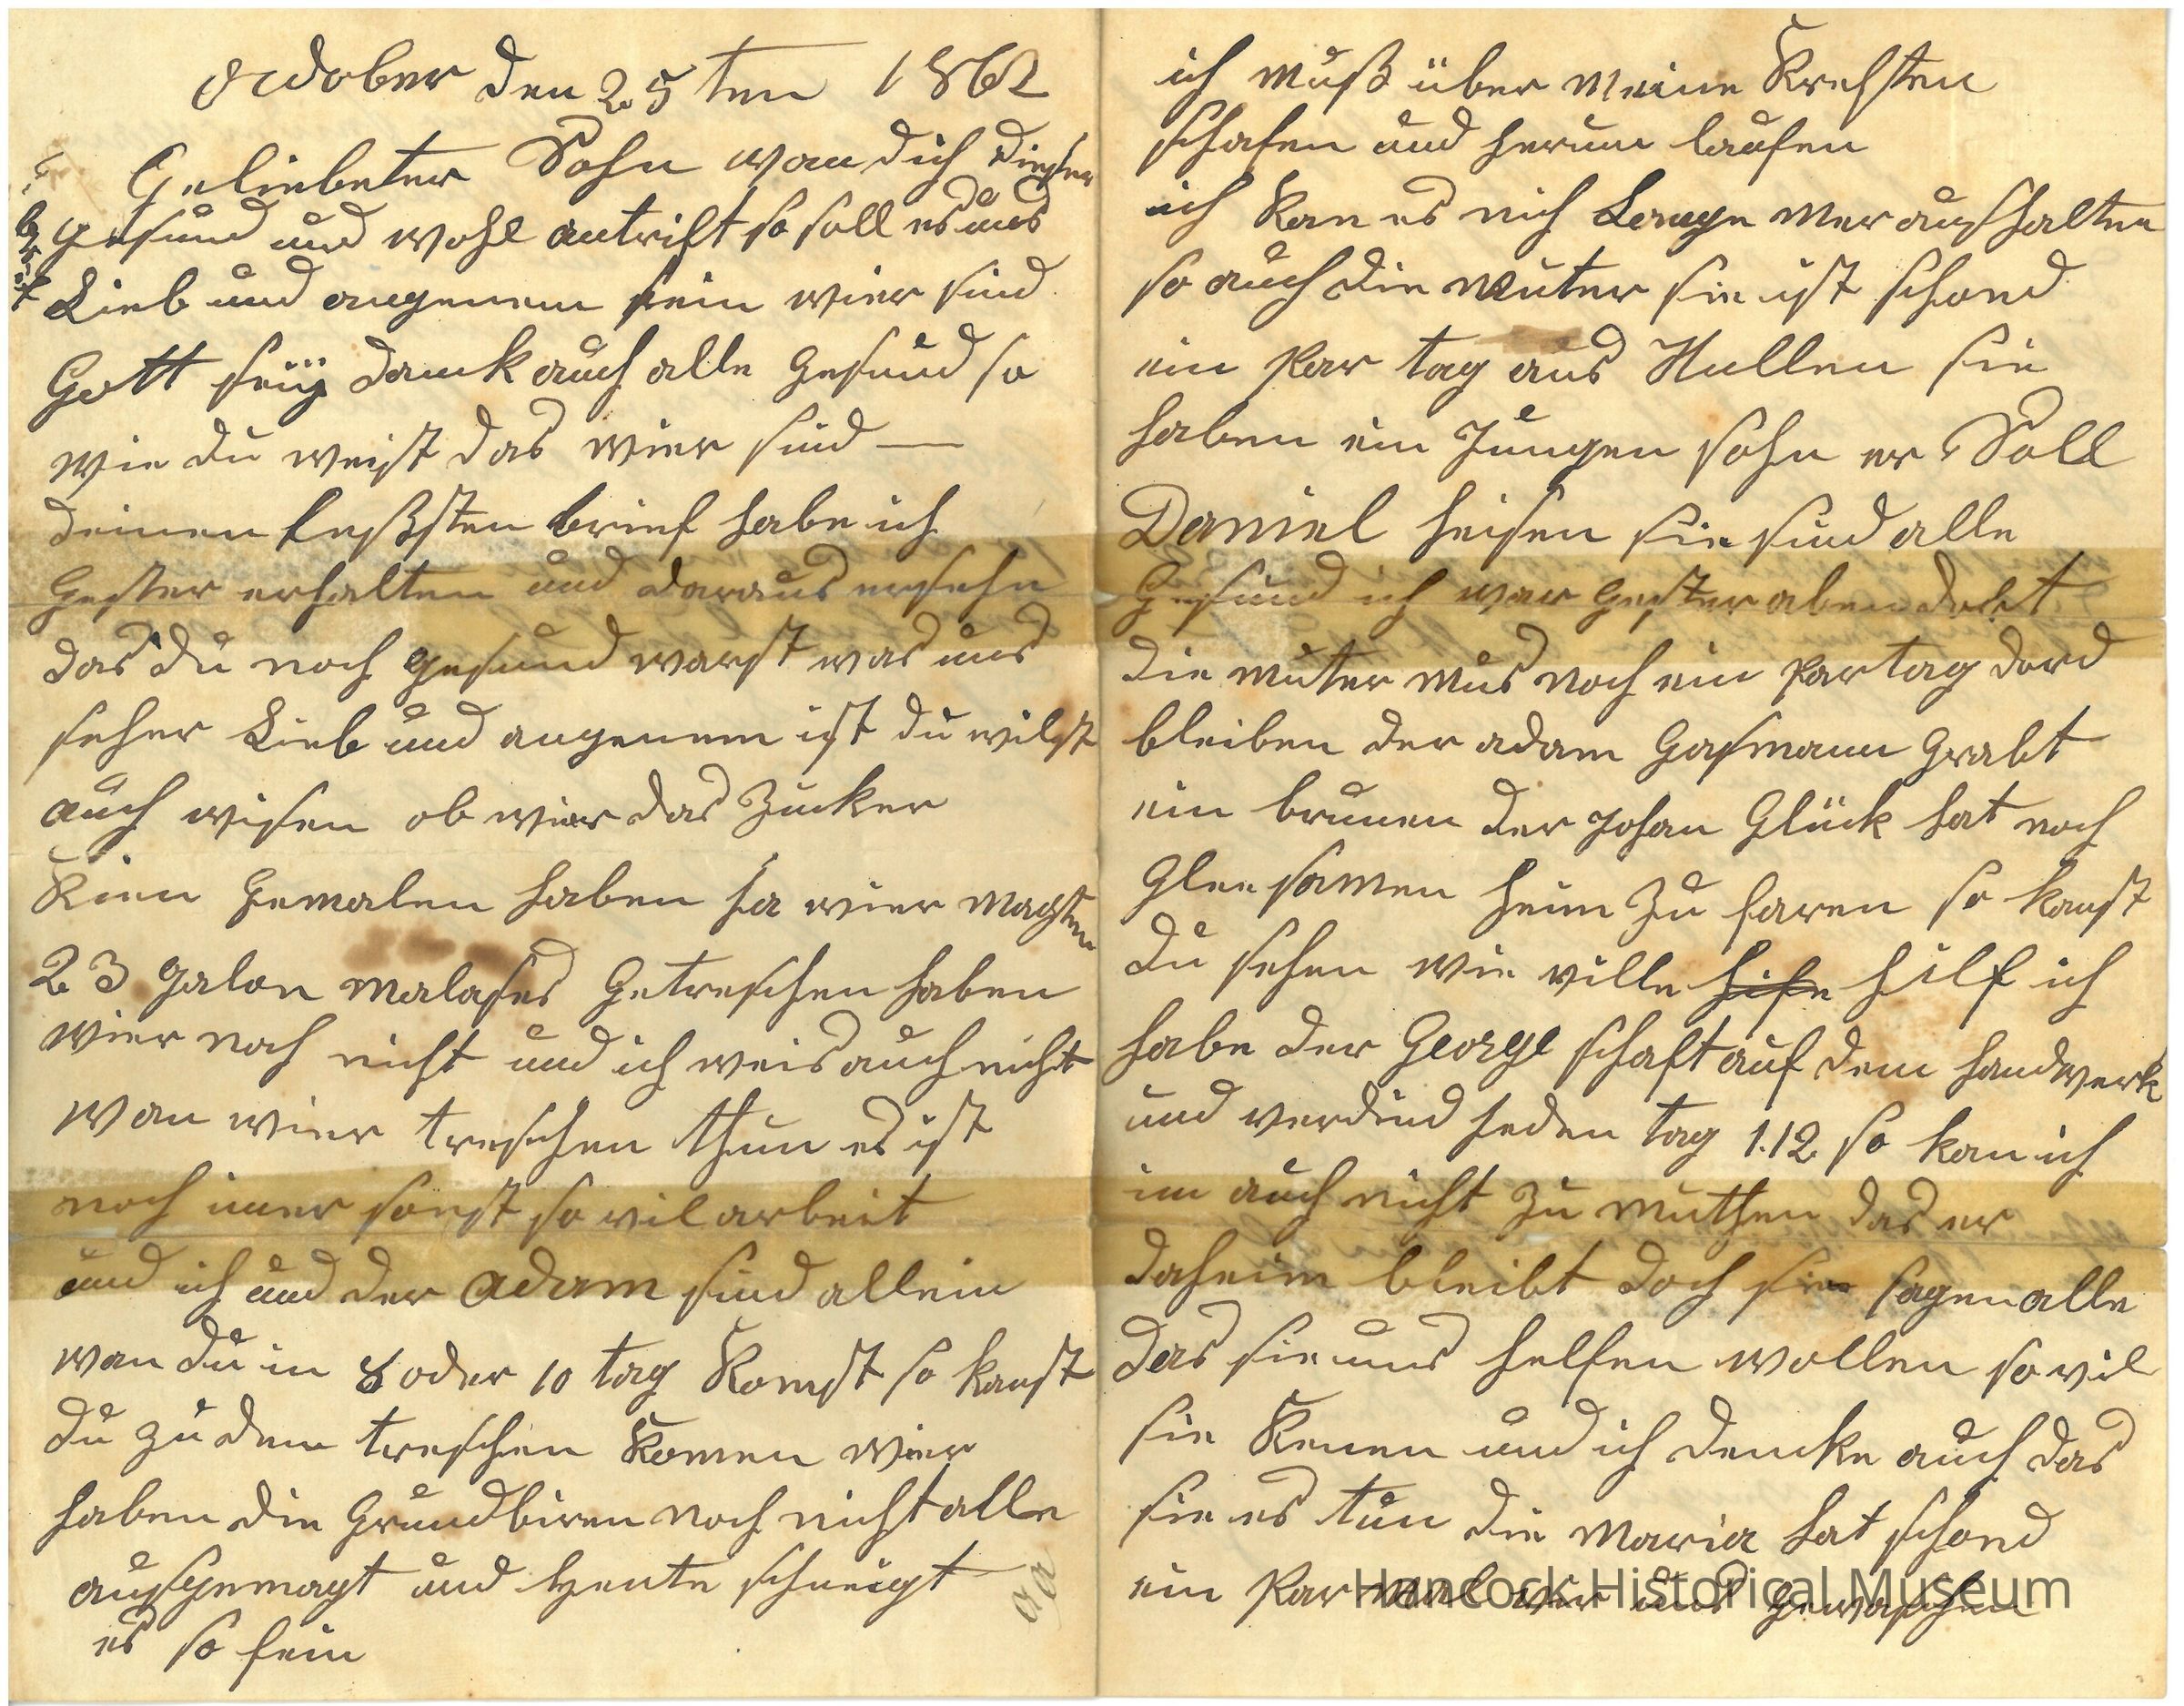 Ocdober den 25ten 1862
Geliebeter Sohn wan dich dieser
brief
gesund und wohl antrift so soll es uns
Lieb und angenem sein wier sind
Gott seÿ dank auch alle gesund so
wie du weist das wier sind —
deinen leßsten brief habe ich
gester erhalten und daraus ersehn
das du noch gesund warst was uns
seher Lieb und angenem ist du wilst
auch wisen ob wier das Zucker
Rien gemalen haben ja wier magten
23 galon malases getreschen haben
wier noch nicht und ich weis auch nicht
wan wier treschen thun es ist
noch imer sonst so vil arbeit
und ich und der adam sind allein
wan du in 8 oder 10 tag Komst so kanst
du zu dem treschen Komen wier
haben die Grundbiren noch nicht alle
ausgemagt und heute schneigt
es so fein
ich muß über meine Krefsten
schafen und herum laufen
ich kan es nich Lange mer aushalten
so auch die muter sie ist schond
ein par tag aus Hullen sie
haben ein Jungen sohn er Soll
Daniel heisen sie sind alle
gesund ich war gester aben dort
die muter mus noch ein par tag dord
bleiben der adam Gasmann grabt
ein brunen der Johan Glück hat noch
Glee samen heim zu faren so kanst
du sehen wie ville hife hilf ich
habe der George schaft auf dem handwerk
und verdind jeden tag 1.12 so kan ich
im auch nicht zu muthen das er
daheim bleibt doch sie sagen alle
das sie uns helfen wollen so vil
sie Kenen und ich dencke auch das
sie es tun die Maria hat schond
ein par mal vier uns gewaschen
Hancock Historical Museum